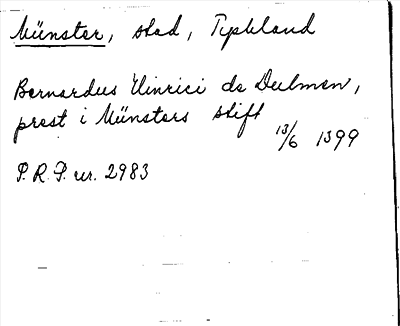 Münster, stad, Tyskland
Bernardus Hinrici de Dulmen,
prest i Münsters stift
13/6 1399
P.R.P. nr. 2983